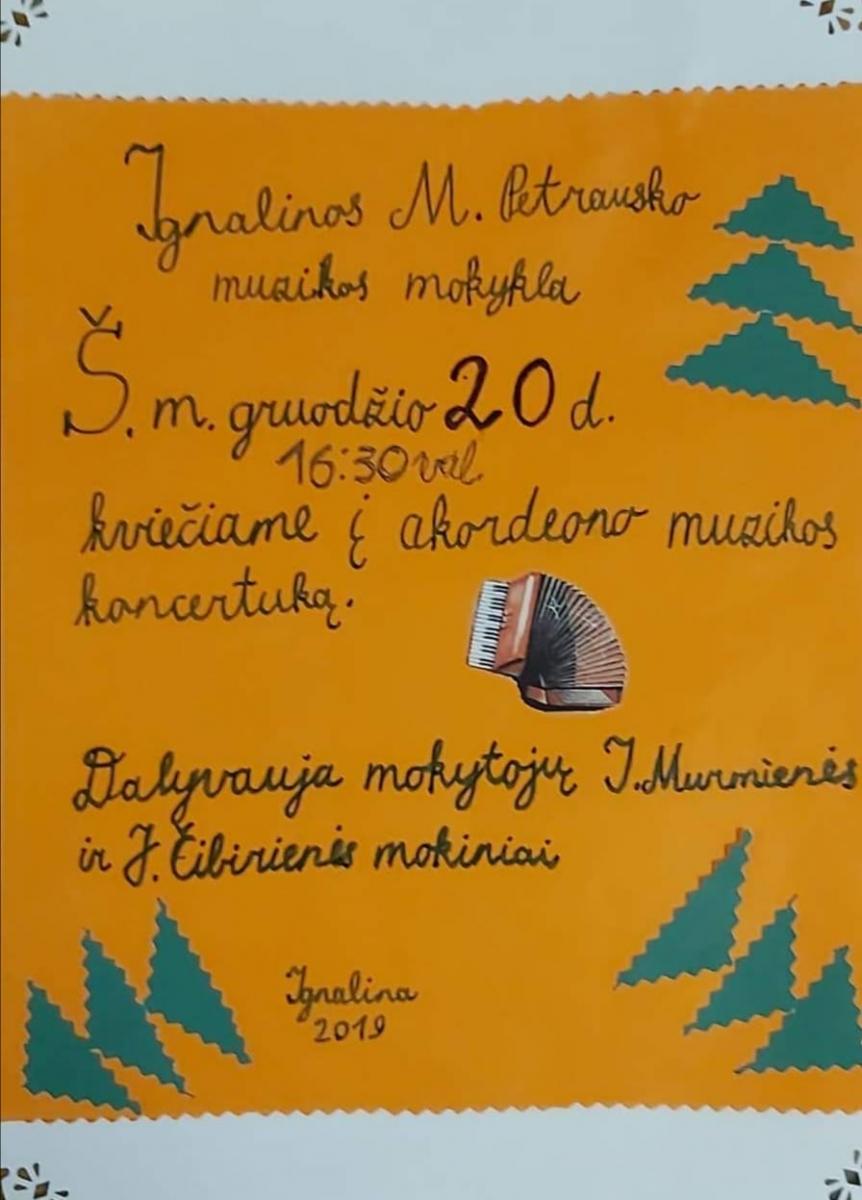 Ignalinos M. Petrausko
muzikos mokykla
Š. m. gruodžio 20 d.
16:30 val.
kviečiame į akordeono muzikos
koncertuką.
Dalyvauja mokytojų I. Murmienės
ir J. Čibirienės mokiniai
Ignalina
2019